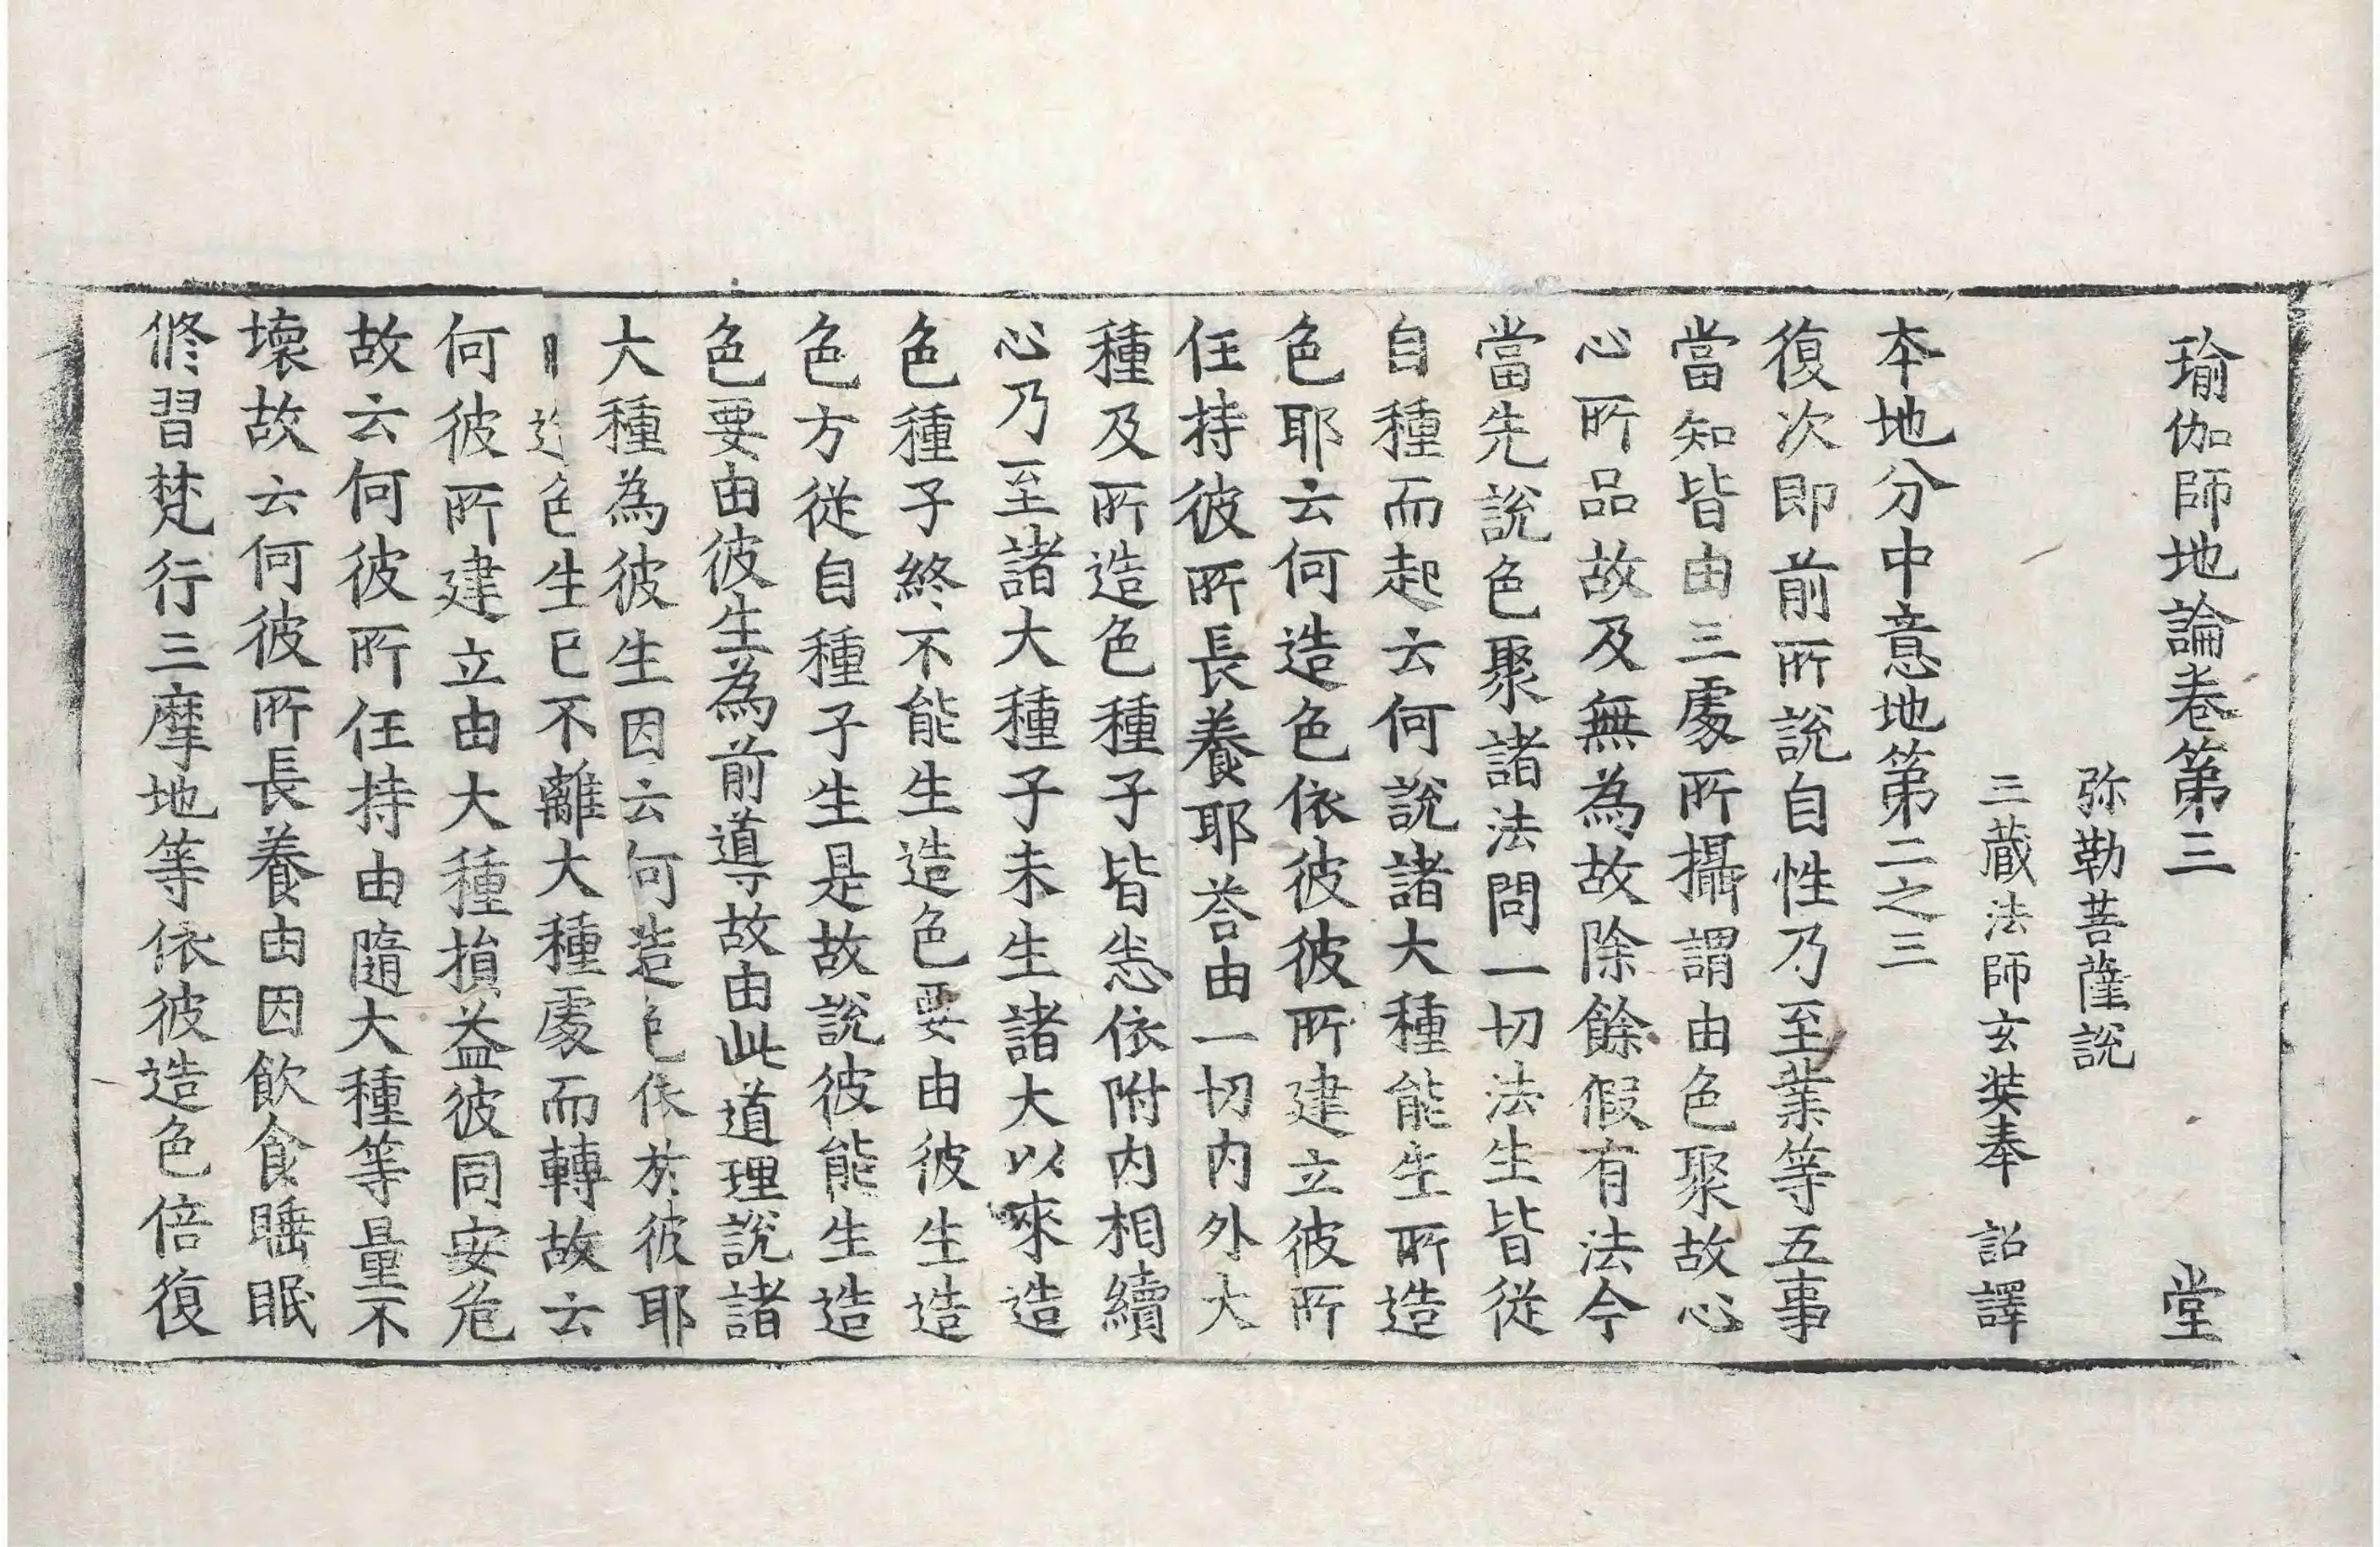 瑜伽師地論卷第三 堂
弥勒菩薩說
三藏法師玄奘奉 詔譯
本地分中意地第二之三
復次即前所說自性乃至業等五事
當知皆由三處所攝謂由色聚故心
心所品故及無為故除餘假有法今
當先說色聚諸法問一切法生皆從
自種而起云何說諸大種能生所造
色耶云何造色依彼彼所建立彼所
任持彼所長養耶荅由一切內外大
種及所造色種子皆悉依附內相續
心乃至諸大種子未生諸大以來造
色種子終不能生造色要由彼生造
色方從自種子生是故說彼能生造
色要由彼生為前導故由此道理說諸
大種為彼生因云何造色依於彼耶
造色生已不離大種處而轉故云
何彼所建立由大種損益彼同安危
故云何彼所任持由隨大種等量不
壞故云何彼所長養由因飲食睡眠
修習梵行三摩地等依彼造色倍復